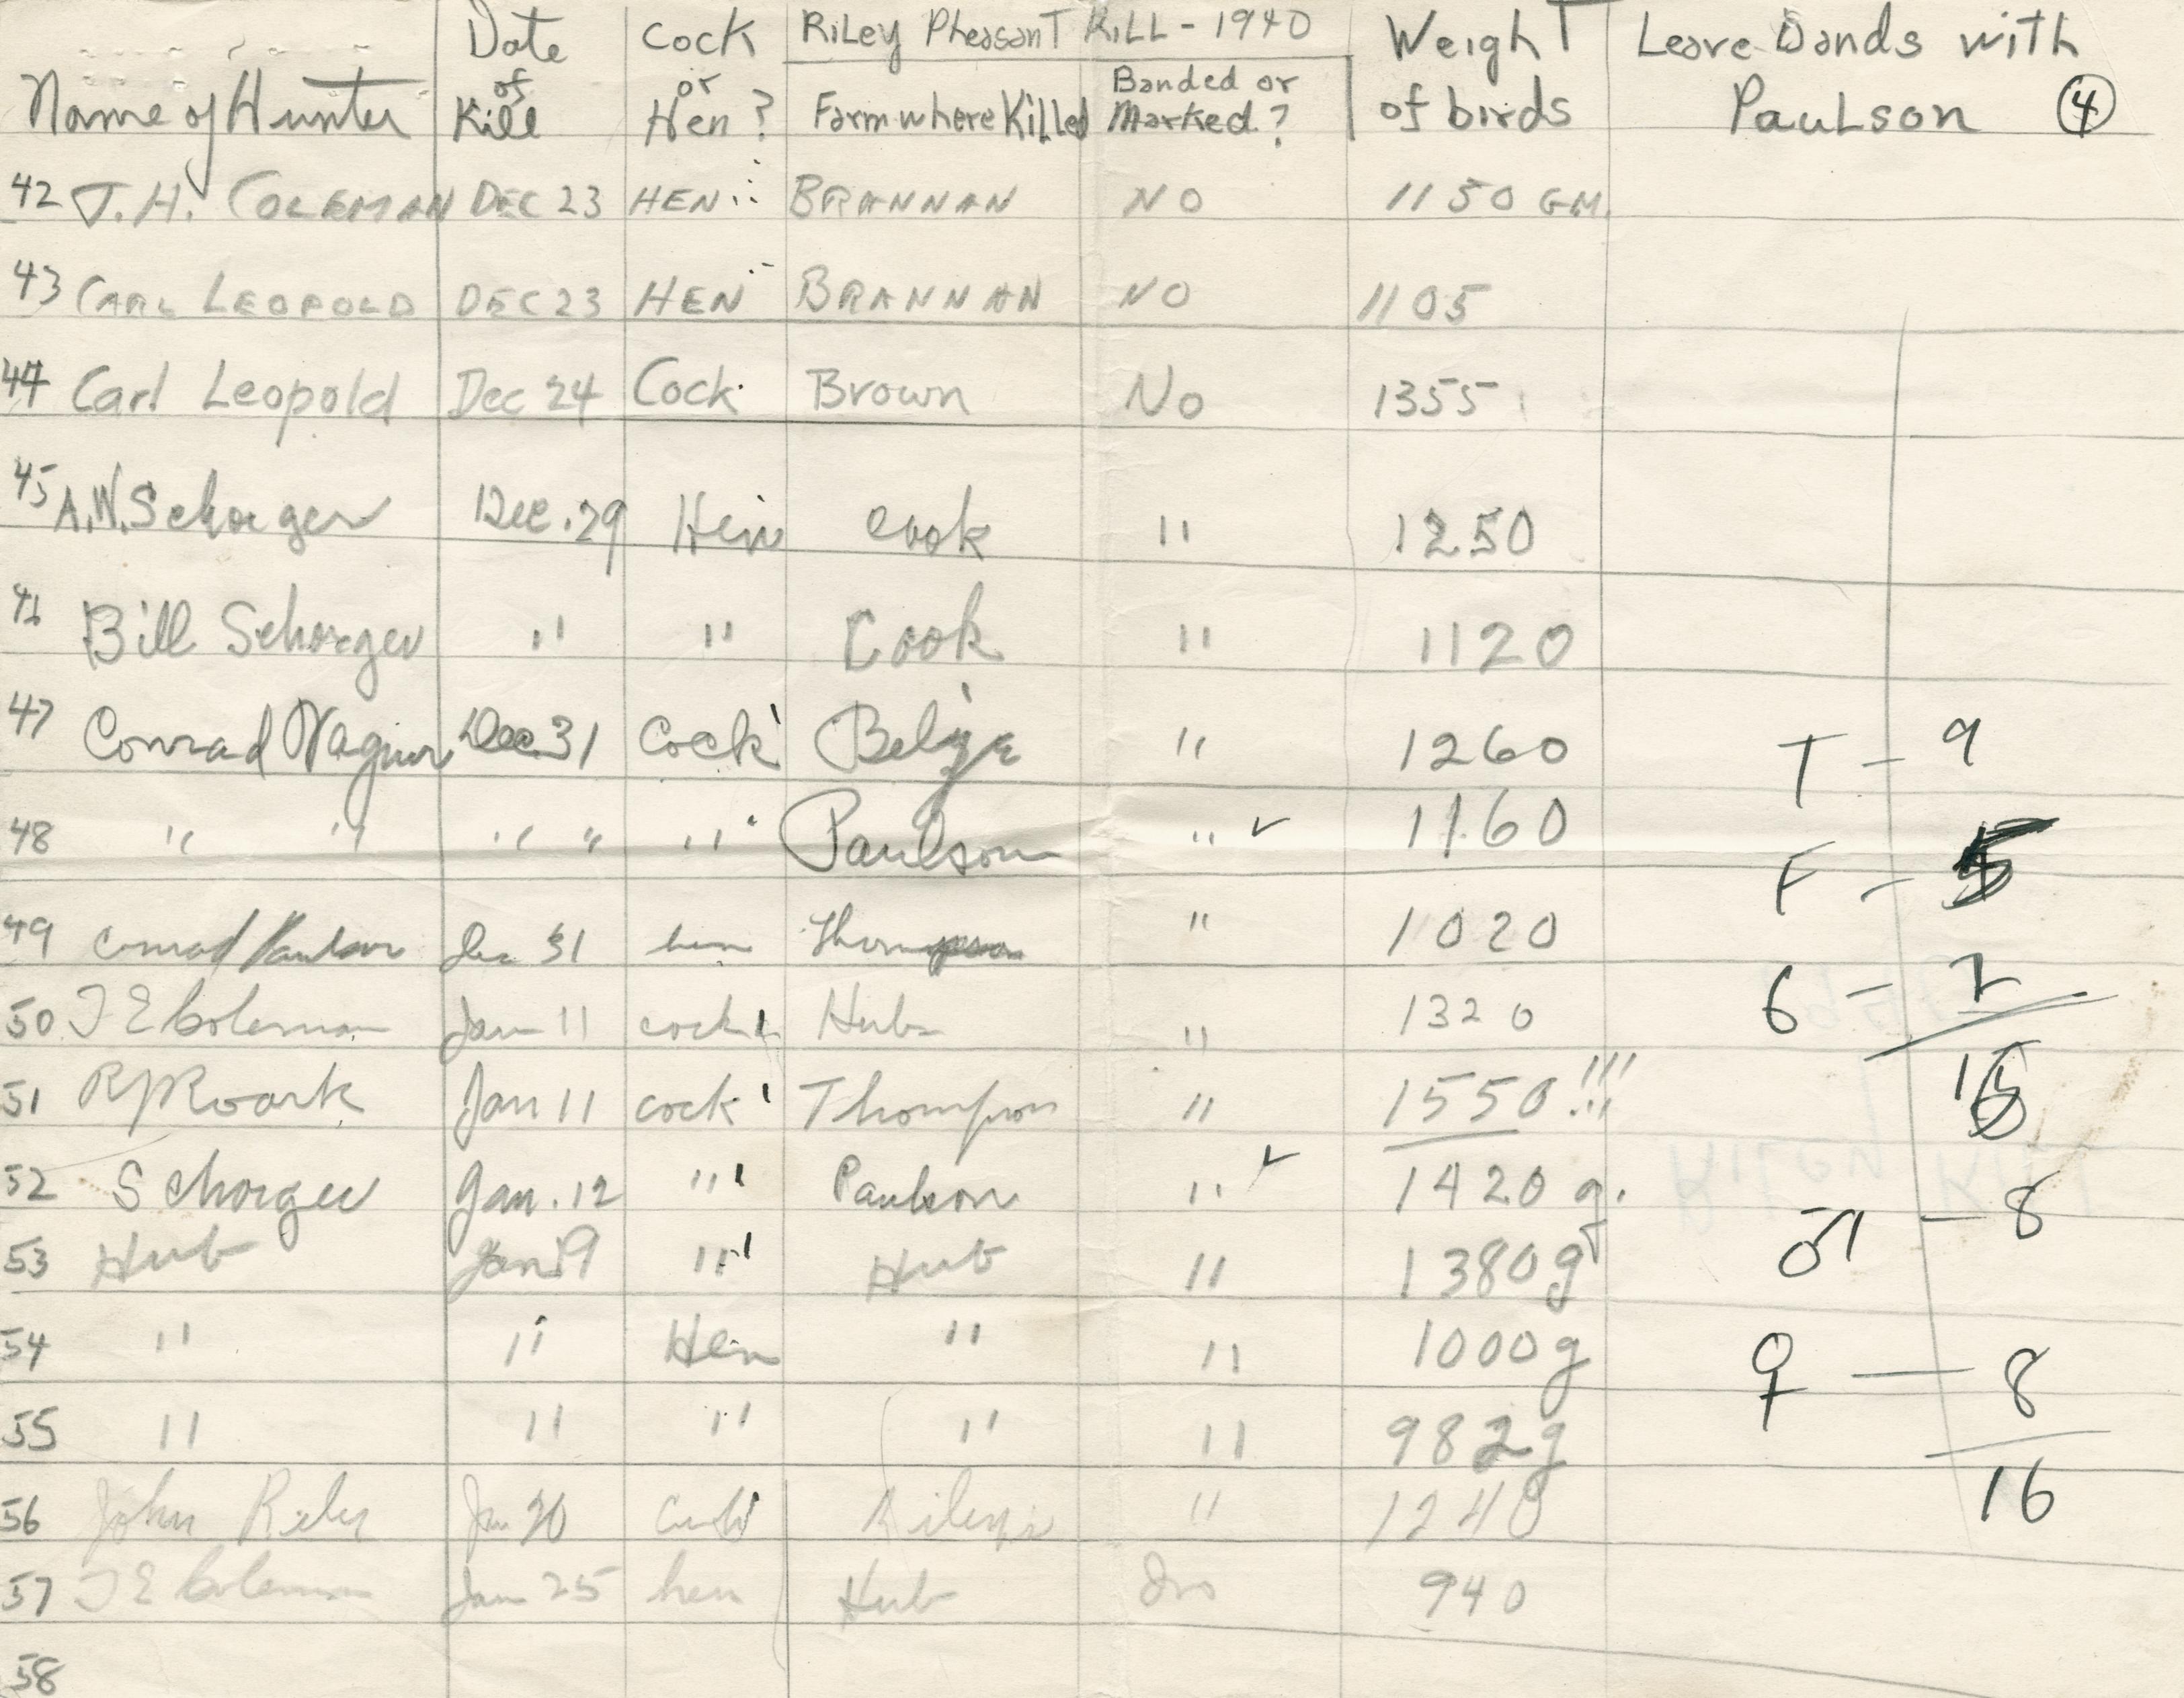 Riley Pheasant Kill - 1940
Name of Hunter Date of Kill Cock or Hen? Farm where Killed Banded or Marked? Weight of birds Leave Bands with Paulson ④
42 J.H. COLEMAN DEC 23 HEN BRANNAN NO 1150 GM.
43 CARL LEOPOLD DEC 23 HEN BRANNAN NO 1105
44 Carl Leopold Dec 24 Cock Brown No 1355
45 A.W. Schorger Dec. 29 Hen Cook " 1250
46 Bill Schorger " " Cook " 1120
47 Conrad Wagner Dec 31 Cock " 1260
T - 9
48 " " " " " Paulson " ✓ 1160
F - 5
49 Conrad Paulson Dec 31 hen Thompson " 1020
50 T E Coleman Jan 11 cock Hub " 1320
6 - 2
51 R J Roark Jan 11 cock Thompson " 1550 !!!
16
52 Schorger Jan. 12 " Paulson " ✓ 1420 g.
♂ - 8
53 Hub Jan 19 " Hub " 1380 g
54 " " Hen " " 1000 g
♀ - 8
55 " " " " " 982 g
16
56 John Riley Jan 20 Cock Rileys " 1240
57 T E Coleman Jan 25 hen Hub no 940
58